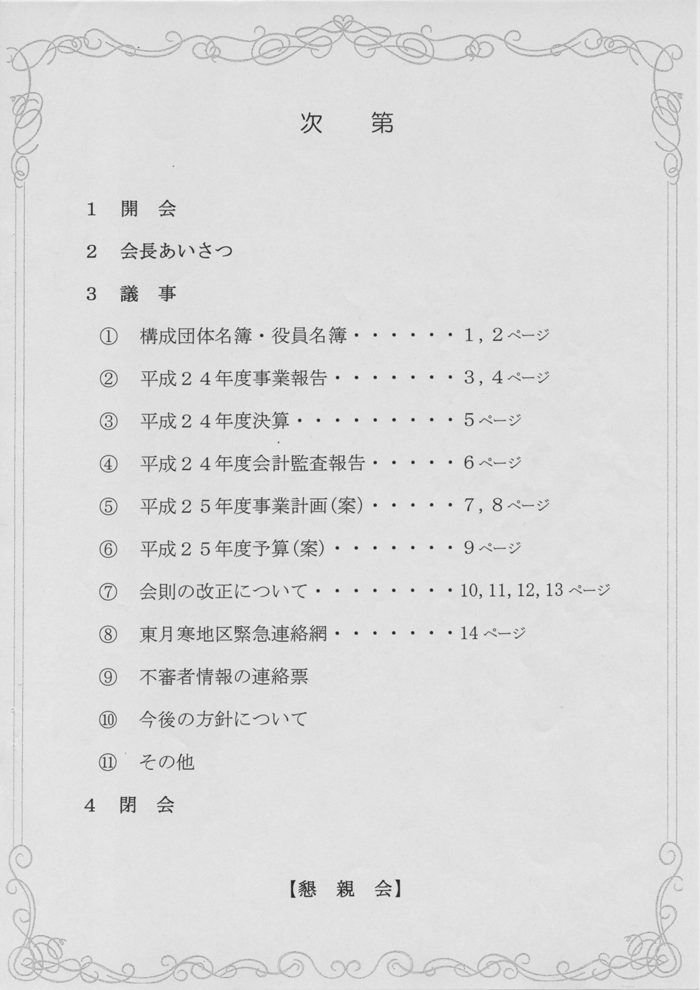 次　　第
１　開　会
２　会長あいさつ
３　議　事
①　構成団体名簿・役員名簿・・・・・・１，２ページ
②　平成２４年度事業報告・・・・・・・３，４ページ
③　平成２４年度決算・・・・・・・・・５ページ
④　平成２４年度会計監査報告・・・・・６ページ
⑤　平成２５年度事業計画(案)・・・・・７，８ページ
⑥　平成２５年度予算(案)・・・・・・・９ページ
⑦　会則の改正について・・・・・・・・10,11,12,13ページ
⑧　東月寒地区緊急連絡網・・・・・・・14ページ
⑨　不審者情報の連絡票
⑩　今後の方針について
⑪　その他
４　閉　会
【懇　親　会】